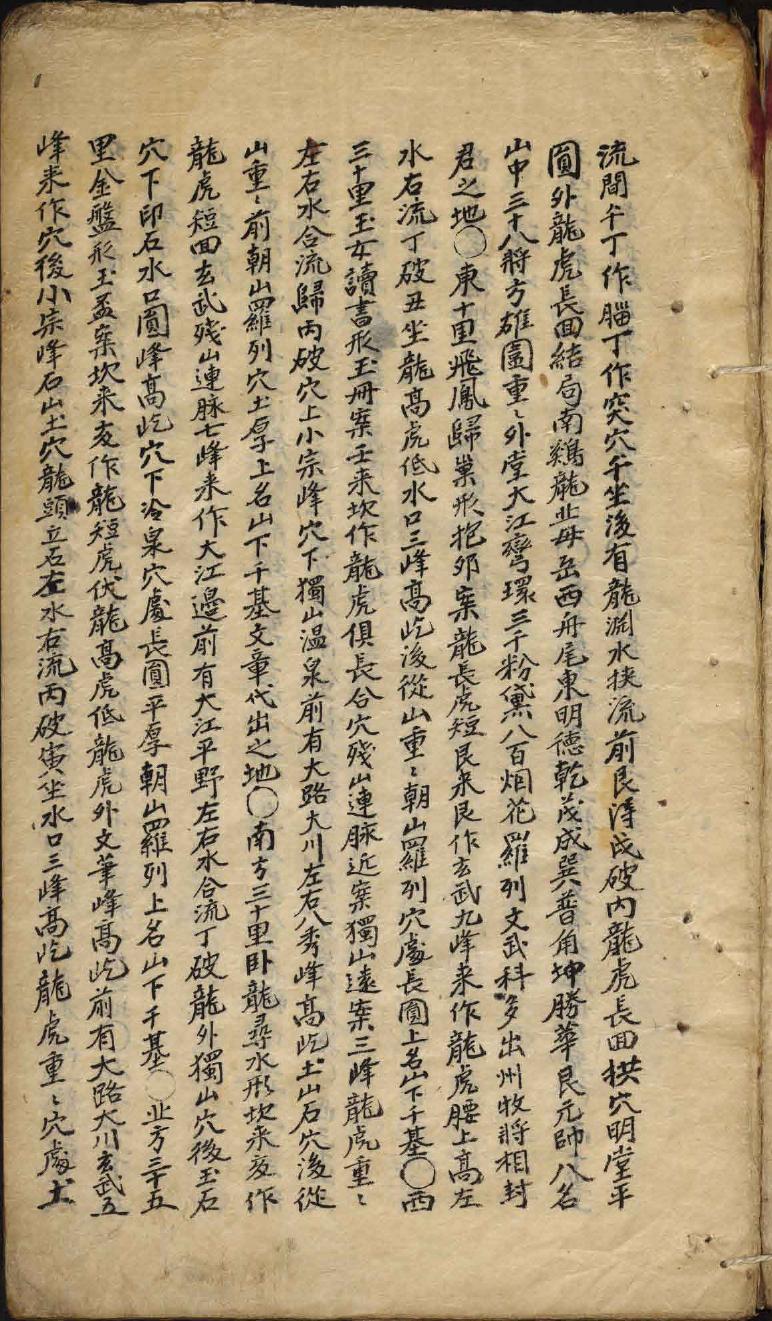 流間午丁作腦丁作突穴午坐後有龍淵水挾流前艮淂戌破內龍虎長回拱穴明堂平
圓外龍虎長回結局南鷄龍北母岳西舟尾東明德乾茂成巽普角坤勝華艮元帥八名
山中三十八將方雄圍重〻外堂大江彎環三千粉黛八百烟花羅列文武科多出州牧將相封
君之地〇東十里飛鳳歸巢形抱卵案龍長虎短艮来艮作玄武九峰来作龍虎腰上高左
水右流丁破丑坐龍高虎低水口三峰高屹後從山重〻朝山羅列穴處長圓上名山下千基〇西
三十里玉女讀書形玉冊案壬来坎作龍虎俱長合穴殘山連脉近案獨山遠案三峰龍虎重〻
左右水合流歸丙破穴上小宗峰穴下獨山温泉前有大路大川左右八秀峰高屹土山石穴後從
山重〻前朝山羅列穴土厚上名山下千基文章代出之地〇南方三十里卧龍尋水形坎来亥作
龍虎短回玄武殘山連脉七峰来作大江邊前有大江平野左右水合流丁破龍外獨山穴後玉石
穴下印石水口圓峰高屹穴下冷泉穴處長圓平厚朝山羅列上名山下千基〇北方三十五
里金盤形玉盃案坎来亥作龍短虎伏龍高虎低龍虎外文筆峰高屹前有大路大川玄武五
峰来作穴後小宗峰石山土穴龍頭立石左水右流丙破寅坐水口三峰高屹龍虎重〻穴處土